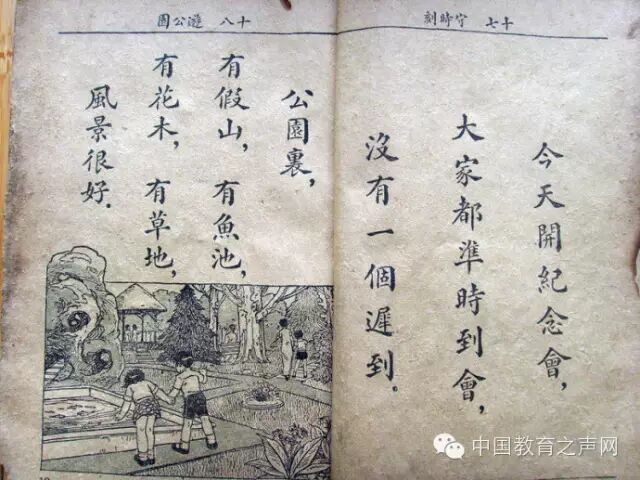 十七 守時刻
今天開紀念會，
大家都準時到會，
沒有一個遲到。
十八 遊公園
公園裏，
有假山，有魚池，
有花木，有草地，
風景很好。
中国教育之声网